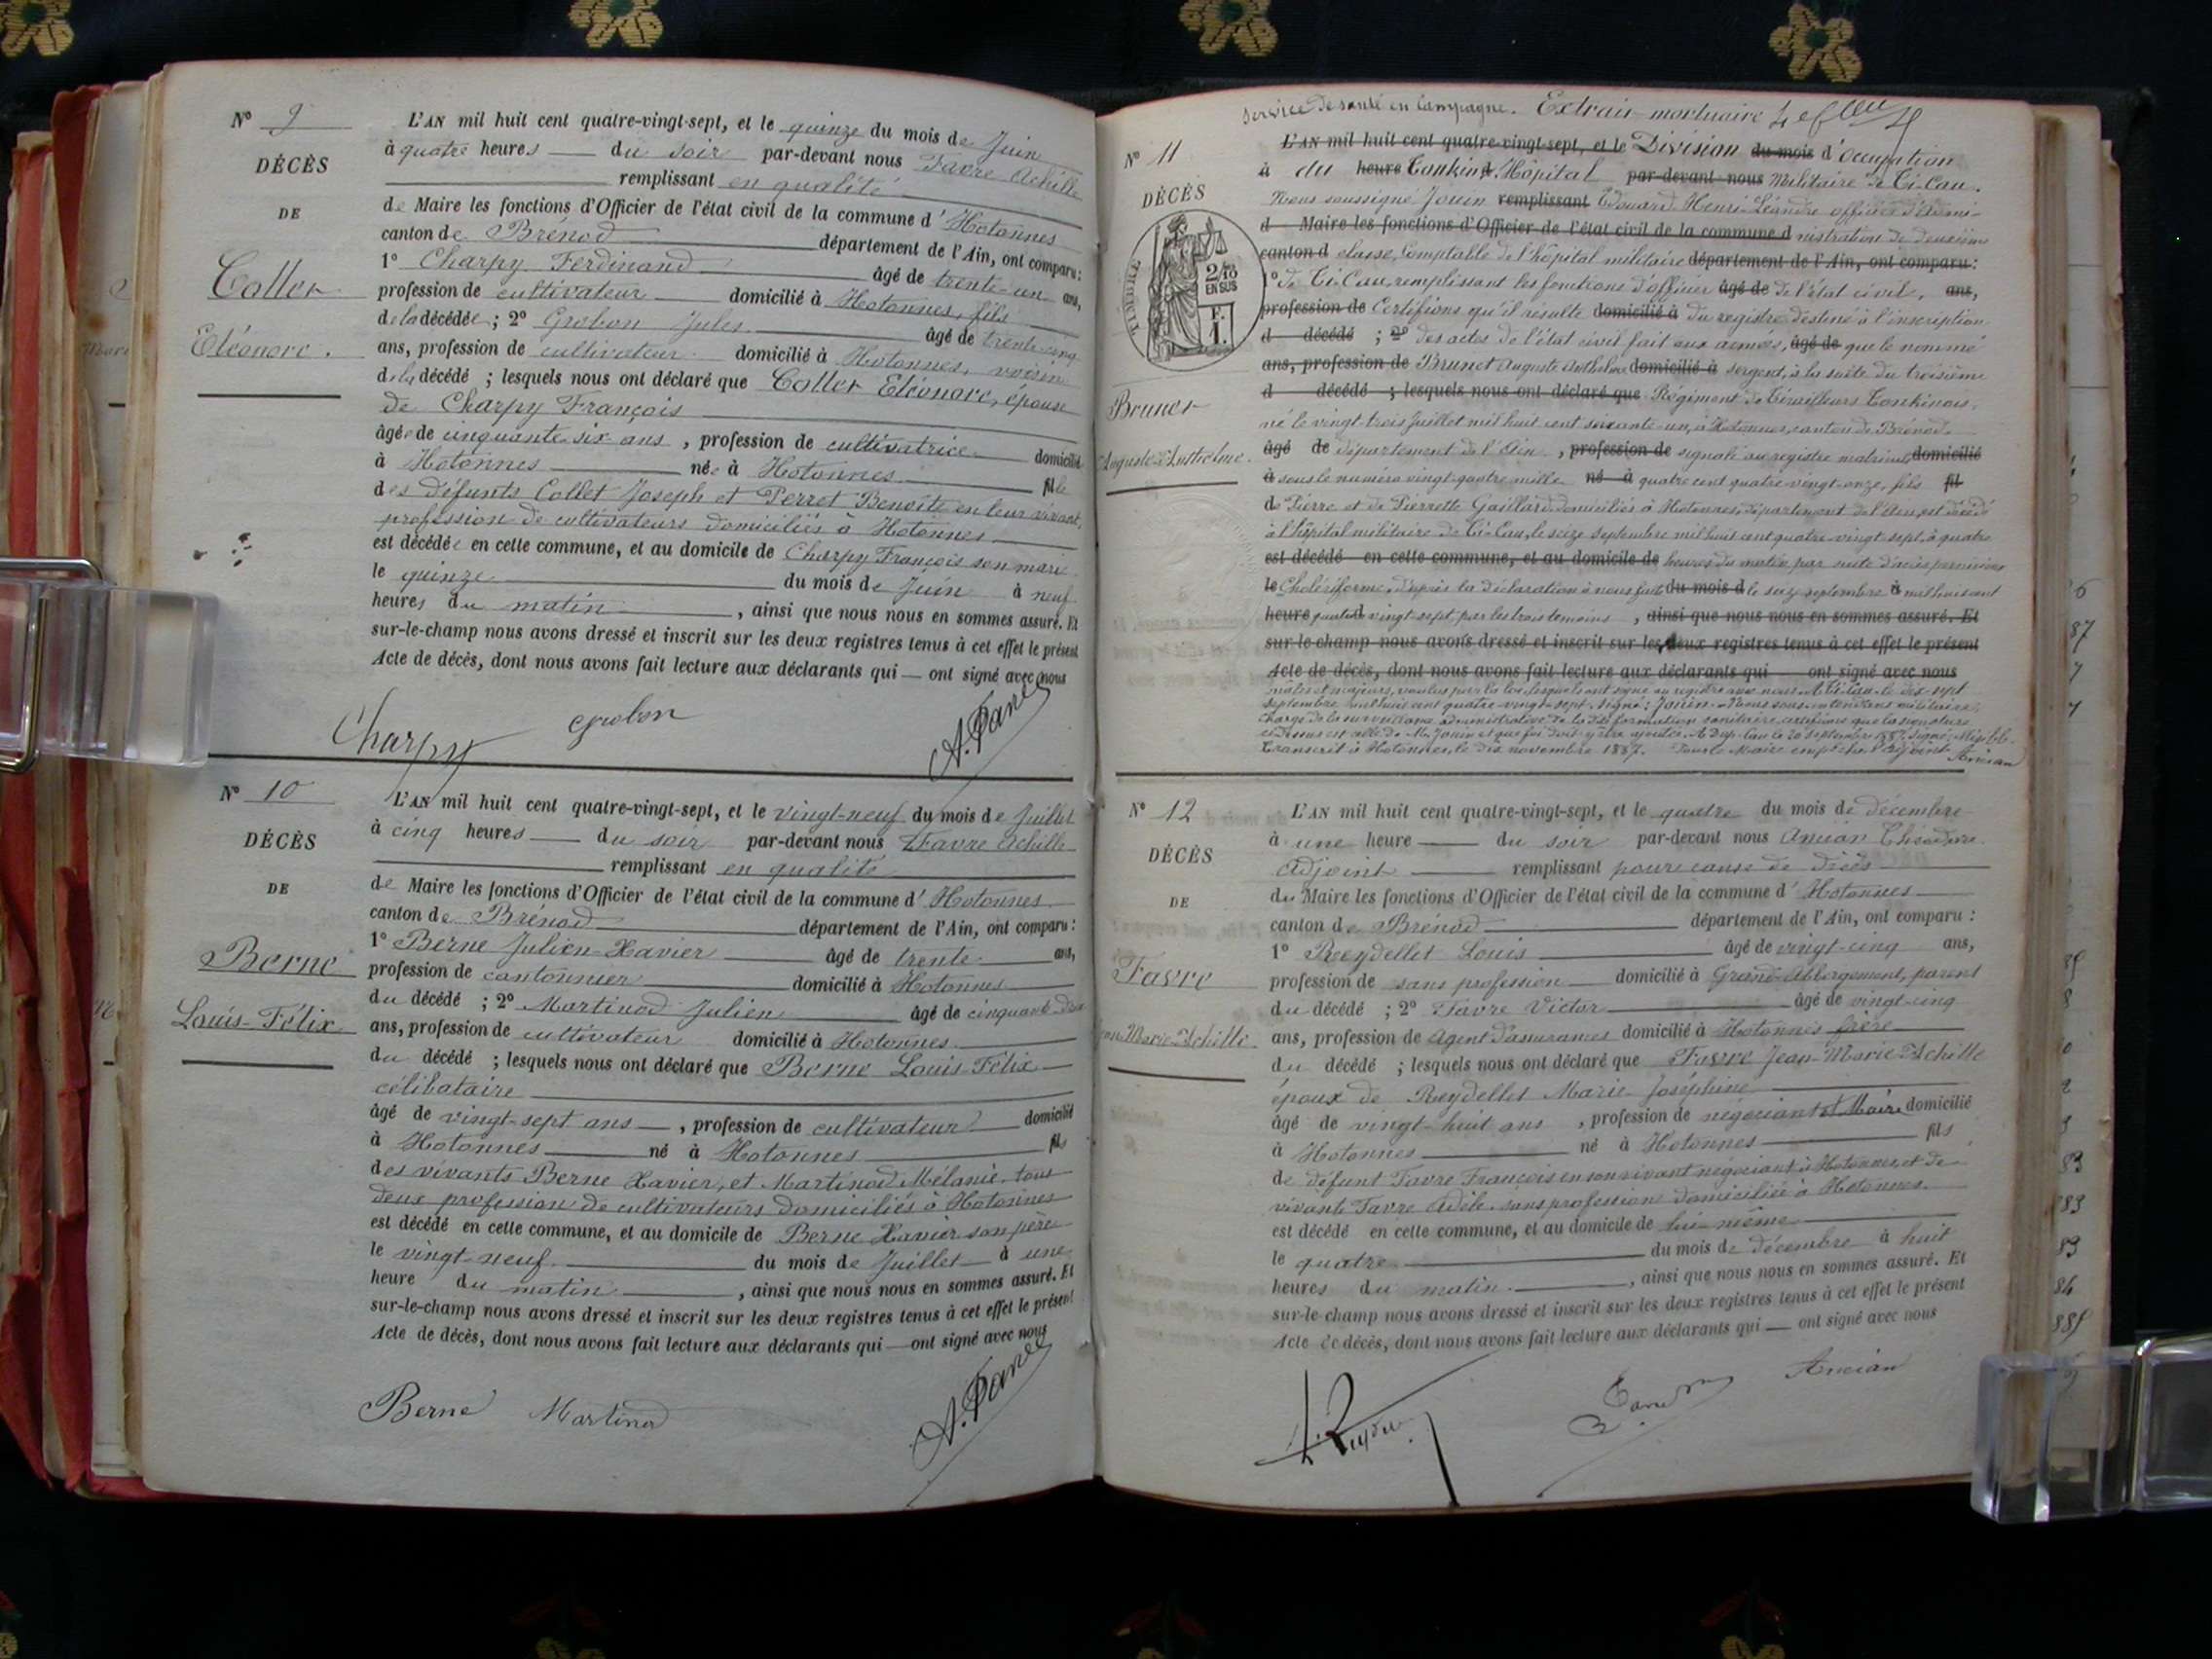 N° 9
DÉCÈS
DE
Collet
Eléonore.
L'AN mil huit cent quatre-vingt-sept, et le quinze du mois de Juin
à quatre heures du soir par-devant nous Favre Achille
remplissant en qualité
de Maire les fonctions d'Officier de l'état civil de la commune d'Hotonnes
canton de Brénod département de l'Ain, ont comparu:
1° Charpy Ferdinand âgé de trente-un ans,
profession de cultivateur domicilié à Hotonnes, fils
de la décédée ; 2° Grobon Jules âgé de trente-cinq
ans, profession de cultivateur domicilié à Hotonnes, voisin
de la décédé ; lesquels nous ont déclaré que Collet Eléonore, épouse
de Charpy François
âgée de cinquante-six ans, profession de cultivatrice domicilié
à Hotonnes née à Hotonnes fille
des défunts Collet Joseph et Perret Benoîte en leur vivant,
profession de cultivateurs domiciliés à Hotonnes
est décédée en cette commune, et au domicile de Charpy François son mari
le quinze du mois de Juin à neuf
heures du matin, ainsi que nous nous en sommes assuré. Et
sur-le-champ nous avons dressé et inscrit sur les deux registres tenus à cet effet le présent
Acte de décès, dont nous avons fait lecture aux déclarants qui — ont signé avec nous
Charpy Grobon A. Favre
N° 10
DÉCÈS
DE
Berne
Louis-Félix
L'AN mil huit cent quatre-vingt-sept, et le vingt-neuf du mois de Juillet
à cinq heures du soir par-devant nous Favre Achille
remplissant en qualité
de Maire les fonctions d'Officier de l'état civil de la commune d'Hotonnes
canton de Brénod département de l'Ain, ont comparu:
1° Berne Julien-Xavier âgé de trente ans,
profession de cantonnier domicilié à Hotonnes
du décédé ; 2° Martinod Julien âgé de cinquante-deux
ans, profession de cultivateur domicilié à Hotonnes
du décédé ; lesquels nous ont déclaré que Berne Louis-Félix
célibataire
âgé de vingt-sept ans, profession de cultivateur domicilié
à Hotonnes né à Hotonnes fils
des vivants Berne Xavier, et Martinod Mélanie, tous
deux profession de cultivateurs domiciliés à Hotonnes
est décédé en cette commune, et au domicile de Berne Xavier son père
le vingt-neuf du mois de Juillet à une
heure du matin, ainsi que nous nous en sommes assuré. Et
sur-le-champ nous avons dressé et inscrit sur les deux registres tenus à cet effet le présent
Acte de décès, dont nous avons fait lecture aux déclarants qui — ont signé avec nous
Berne Martinod A. Favre
Service de santé en Campagne. Extrait mortuaire
N° 11
DÉCÈS
TIMBRE
2/10
EN SUS
F.
1.
Brunet
Auguste Anthelme.
L'AN mil huit cent quatre-vingt-sept, et le Division du mois d'occupation
à du heure Tonkin. Hôpital par-devant nous Militaire de Ti-Cau.
Nous soussigné Jouin remplissant Edouard Henri Léandre officier d'admi-
d Maire les fonctions d'Officier de l'état civil de la commune d nistration de deuxième
canton d classe, Comptable de l'hôpital militaire département de l'Ain, ont comparu:
1° de Ti-Cau, remplissant les fonctions d'officier âgé de de l'état civil, ans,
profession de Certifions qu'il résulte domicilié à du registre destiné à l'inscription
d décédé ; 2° des actes de l'état civil fait aux armées, âgé de que le nommé
ans, profession de Brunet Auguste Anthelme domicilié à sergent, à la suite du troisième
d décédé ; lesquels nous ont déclaré que Régiment de Tirailleurs Tonkinois,
né le vingt-trois Juillet mil huit cent soixante-un, à Hotonnes, canton de Brénod
âgé de département de l'Ain, profession de signalé au registre matricule domicilié
à sous le numéro vingt-quatre mille né à quatre cent quatre-vingt-onze, fils fil
de Pierre et de Pierrette Gaillard domiciliés à Hotonnes, département de l'Ain, est décédé
à l'hôpital militaire de Ti-Cau, le seize septembre mil huit cent quatre-vingt-sept, à quatre
est décédé en cette commune, et au domicile de heures du matin, par suite d'accès pernicieux
le Cholériforme, d'après la déclaration à nous fait du mois d le seize septembre à mil huit cent
heure quatre d vingt-sept, par les trois témoins, ainsi que nous nous en sommes assuré. Et
sur-le-champ nous avons dressé et inscrit sur les deux registres tenus à cet effet le présent
Acte de décès, dont nous avons fait lecture aux déclarants qui ont signé avec nous
mâles et majeurs, voulus par la loi, lesquels ont signé au registre avec nous. A Ti-Cau le dix-sept
septembre mil huit cent quatre-vingt-sept. Signé: Jouin. Nous sous-intendant militaire,
chargé de la surveillance administrative de la dite formation sanitaire, certifions que la signature
ci-dessus est celle de Mr Jouin et que foi doit y être ajoutée. le 20 septembre 1887. signé:
Transcrit à Hotonnes, le dix novembre 1887. Pour le Maire empêché l'adjoint Ancian
N° 12
DÉCÈS
DE
Favre
Jean Marie Achille
L'AN mil huit cent quatre-vingt-sept, et le quatre du mois de décembre
à une heure du soir par-devant nous Ancian Théodore
Adjoint remplissant pour cause de décès
du Maire les fonctions d'Officier de l'état civil de la commune d'Hotonnes
canton de Brénod département de l'Ain, ont comparu:
1° Reydellet Louis âgé de vingt-cinq ans,
profession de sans profession domicilié à Grand-Abbergement, parent
du décédé ; 2° Favre Victor âgé de vingt-cinq
ans, profession de Agent d'assurances domicilié à Hotonnes frère
du décédé ; lesquels nous ont déclaré que Favre Jean-Marie-Achille
époux de Reydellet Marie Joséphine
âgé de vingt-huit ans, profession de négociant et Maire domicilié
à Hotonnes né à Hotonnes fils
de défunt Favre François en son vivant négociant à Hotonnes, et de
vivante Favre Adèle, sans profession domiciliée à Hotonnes.
est décédé en cette commune, et au domicile de lui-même
le quatre du mois de décembre à huit
heures du matin, ainsi que nous nous en sommes assuré. Et
sur-le-champ nous avons dressé et inscrit sur les deux registres tenus à cet effet le présent
Acte de décès, dont nous avons fait lecture aux déclarants qui — ont signé avec nous
Ancian